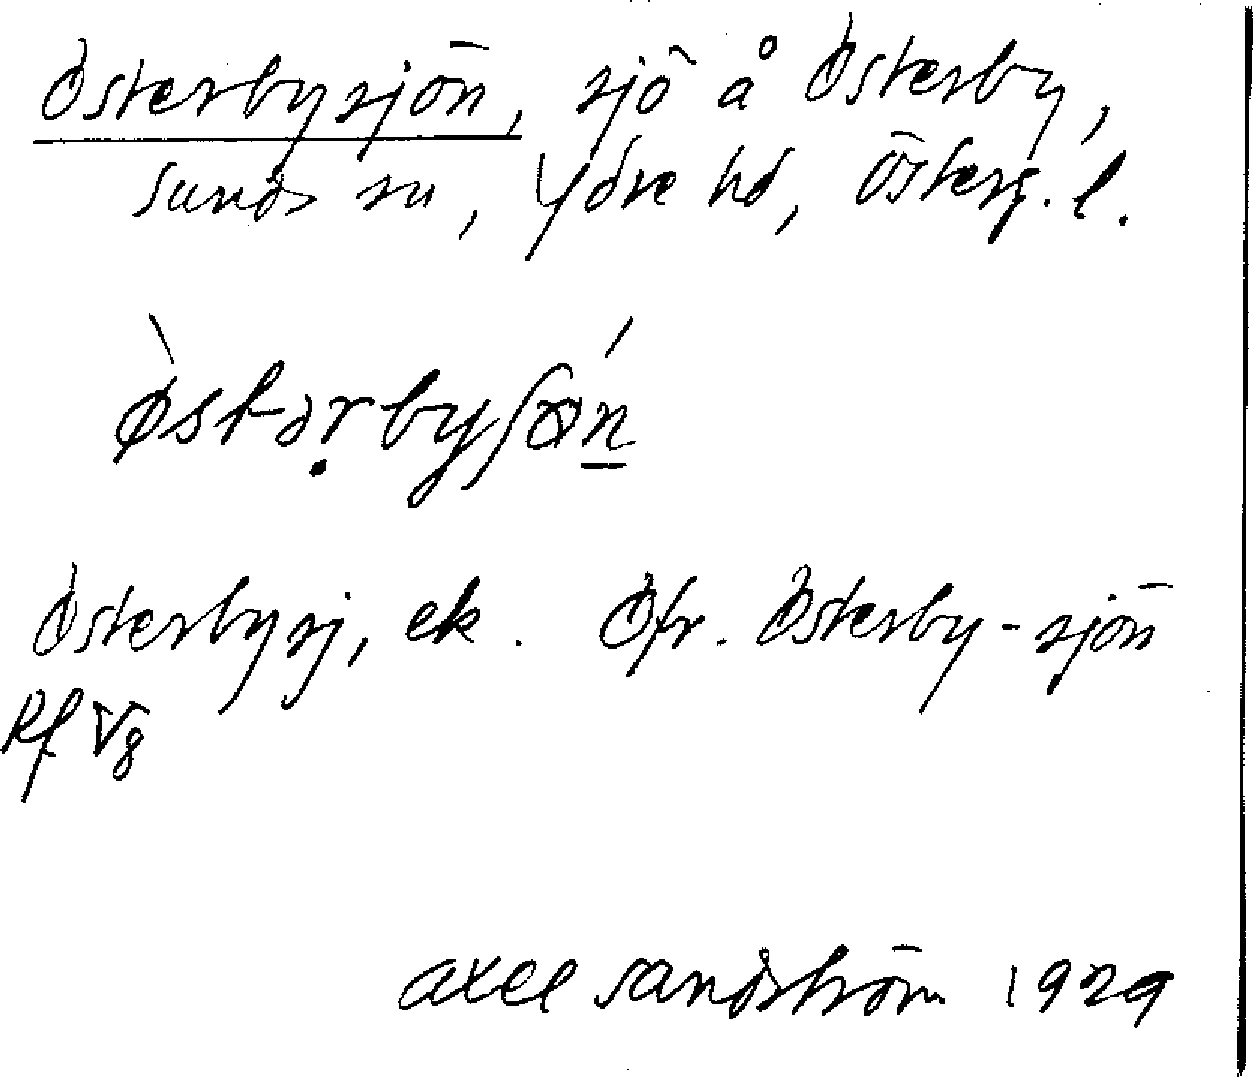 Österbysjön, sjö å Österby,
Sunds sn, Ydre hd, Österg. l.
Österbysj, ek. Öfr. Österby-sjön
Rf Vg
Axel Sandström 1929